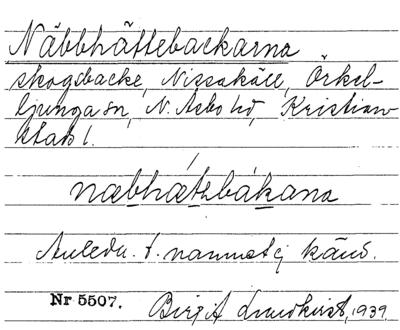 Näbbhättebackarna
skogsbacke, Nissakäll, Örkel-
ljunga sn, N. Åsbo hd, Kristian-
stads l.
næbhæt̄ebákana
Anledn. t. namnet ej känd.
Nr 5507. Birgit Lundkvist, 1939